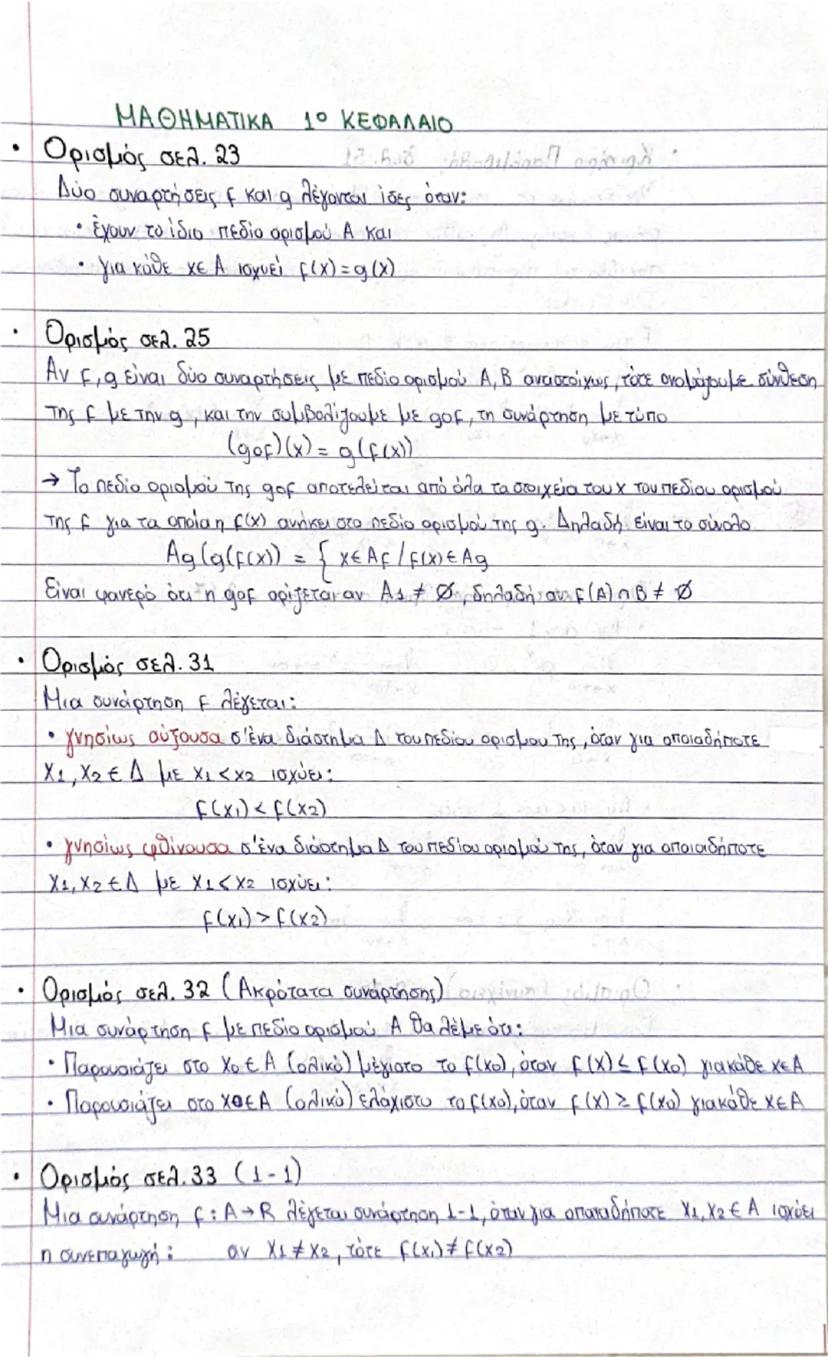 ΜΑΘΗΜΑΤΙΚΑ 1ο ΚΕΦΑΛΑΙΟ
• Ορισμός σελ. 23
Δύο συναρτήσεις f και g λέγονται ίσες όταν:
• έχουν το ίδιο πεδίο ορισμού A και
• για κάθε x∈A ισχυεί f(x)=g(x)
• Ορισμός σελ. 25
Αν f,g είναι δύο συναρτήσεις με πεδίο ορισμού A, B αντιστοίχως, τότε ονομάζουμε σύνθεση
της f με την g, και την συμβολίζουμε με gof, τη συνάρτηση με τύπο
(gof)(x) = g(f(x))
→ Το πεδίο ορισμού της gof αποτελείται από όλα τα στοιχεία του x του πεδίου ορισμού
της f για τα οποία η f(x) ανήκει στο πεδίο ορισμού της g. Δηλαδή είναι το σύνολο
Ag(g(f(x)) = { x∈Af / f(x)∈Ag
Είναι φανερό ότι η gof ορίζεται αν A1 ≠ Ø, δηλαδή αν f(A)∩B ≠ Ø
• Ορισμός σελ. 31
Μια συνάρτηση f λέγεται:
• γνησίως αύξουσα σ'ένα διάστημα Δ του πεδίου ορισμου της, όταν για οποιαδήποτε
x1, x2 ∈ Δ με x1<x2 ισχύει:
f(x1) < f(x2)
• γνησίως φθίνουσα σ'ένα διάστημα Δ του πεδίου ορισμού της, όταν για οποιαδήποτε
x1, x2 ∈ Δ με x1<x2 ισχύει:
f(x1) > f(x2)
• Ορισμός σελ. 32 (Ακρότατα συνάρτησης)
Μια συνάρτηση f με πεδίο ορισμού A θα λέμε ότι:
• Παρουσιάζει στο x0∈A (ολικό) μέγιστο το f(x0), όταν f(x) ≤ f(x0) για κάθε x∈A
• Παρουσιάζει στο x0∈A (ολικό) ελάχιστο το f(x0), όταν f(x) ≥ f(x0) για κάθε x∈A
• Ορισμός σελ. 33 (1-1)
Μια συνάρτηση f: A→R λέγεται συνάρτηση 1-1, όταν για οποιαδήποτε x1, x2 ∈ A ισχύει
η συνεπαγωγή: αν x1 ≠ x2, τότε f(x1) ≠ f(x2)